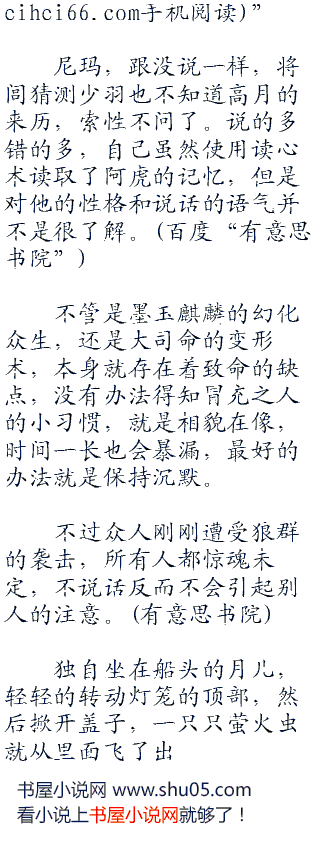 cihci66.com手机阅读)”
尼玛，跟没说一样，将
闾猜测少羽也不知道高月的
来历，索性不问了。说的多
错的多，自己虽然使用读心
术读取了阿虎的记忆，但是
对他的性格和说话的语气并
不是很了解。(百度“有意思
书院”)
不管是墨玉麒麟的幻化
众生，还是大司命的变形
术，本身就存在着致命的缺
点，没有办法得知冒充之人
的小习惯，就是相貌在像，
时间一长也会暴漏，最好的
办法就是保持沉默。
不过众人刚刚遭受狼群
的袭击，所有人都惊魂未
定，不说话反而不会引起别
人的注意。(有意思书院)
独自坐在船头的月儿，
轻轻的转动灯笼的顶部，然
后掀开盖子，一只只萤火虫
就从里面飞了出
书屋小说网 www.shu05.com
看小说上书屋小说网就够了！